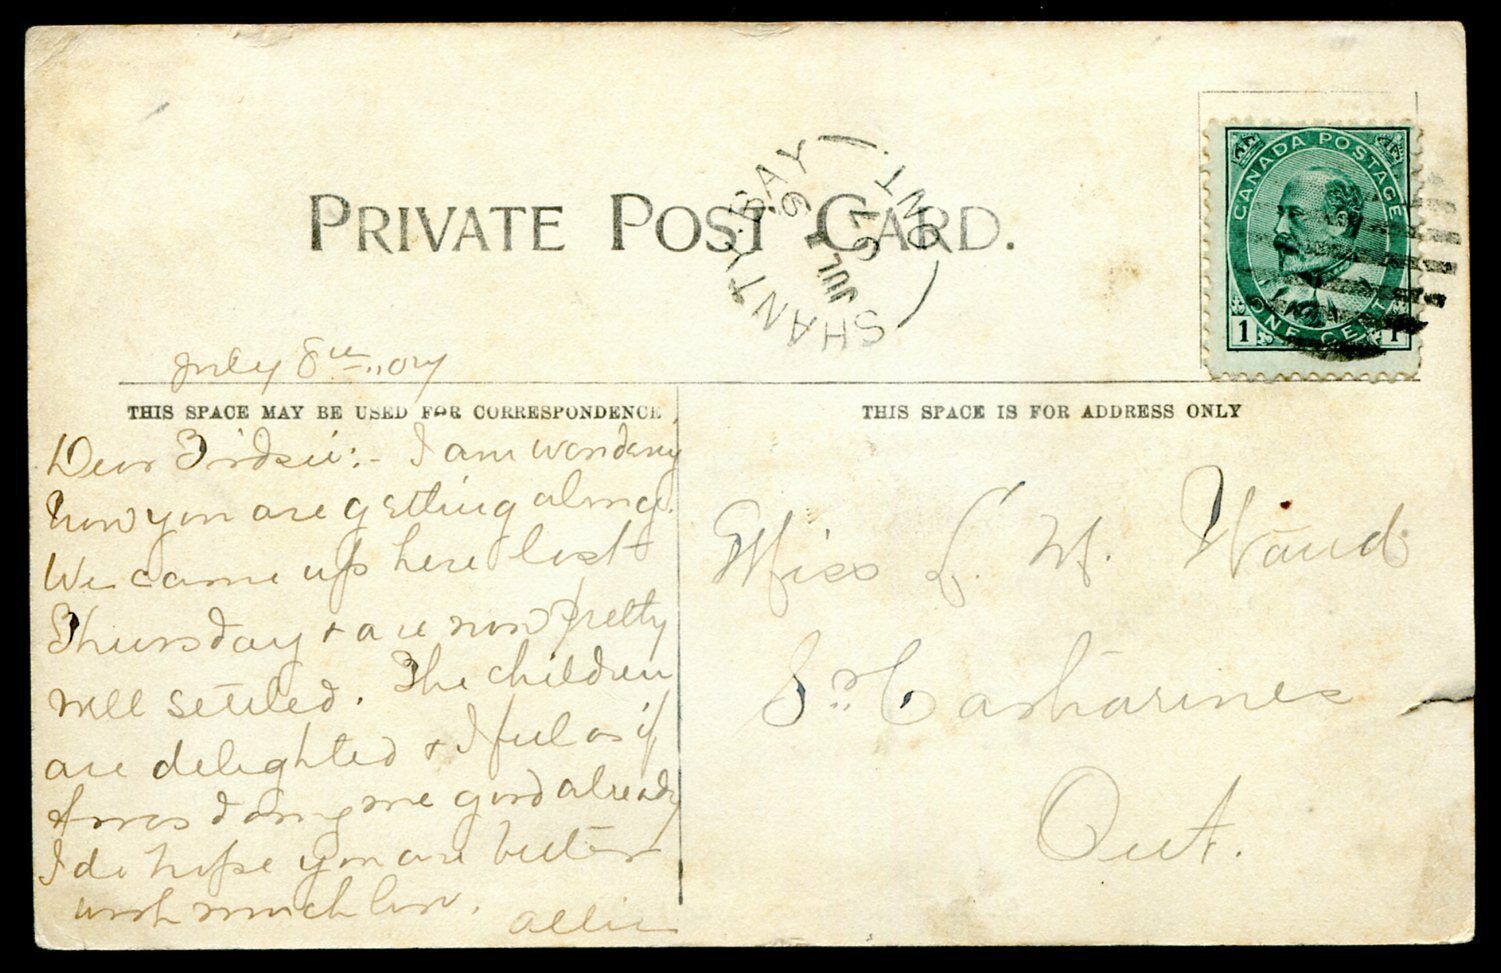 PRIVATE POST CARD.
SHANTY BAY ONT.
JUL 9
07
CANADA POSTAGE
1 ONE CENT 1
July 8th, 07
THIS SPACE MAY BE USED FOR CORRESPONDENCE
THIS SPACE IS FOR ADDRESS ONLY
Dear Birdsie:- I am wondering
how you are getting along.
We came up here last
Thursday + are now pretty
well settled. The children
are delighted + I feel as if
it was doing me good already
I do hope you are better
with much love. Allie
Miss L. M. Waud
St. Catharines
Ont.